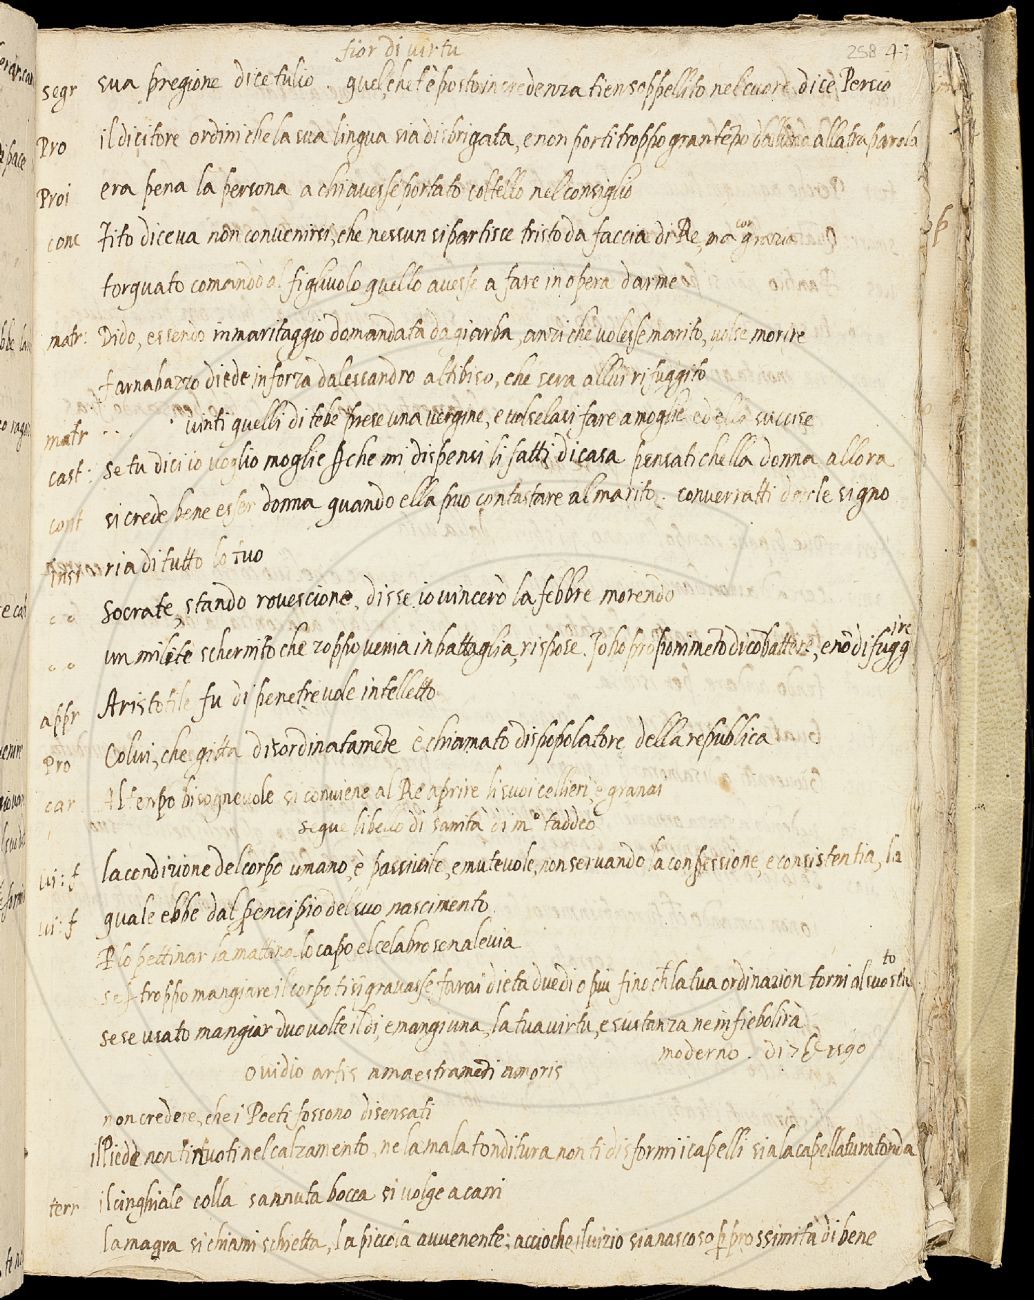 fior di virtu
258 4
segr sua pregione dice tulio. quel che t'è posto in credenza tien soppellito nel cuore, dice Persio
Pro il dicitore ordini che la sua lingua sia disbrigata, e non porti troppo gran tēpo dall'una all'altra parola
Proi era pena la persona a chi avesse portato coltello nel consiglio
conc Tito diceva non convenirsi, che nessun si partisse tristo da faccia di Re, ma cor grazia
torquato comandò al figliuolo quello avesse a fare in opera d'arme
matr: Dido, essendo in maritaggio domandata da giarba, anzi che volesse marito, volse morire
farnabazzo diede in forza d'alessandro altibiso, che s'era a llui rifuggito
matr vinti quelli di tebe prese una vergine, e volselasi fare a moglie ed ella s'uccise
cast: se tu dici io voglio moglie p che mi dispensi li fatti di casa pensati che lla donna allora
cont si crede bene esser donna quando ella può contastare al marito. converratti darle signo
insr ria di tutto lo tuo
Socrate, stando rovescione, disse io vincerò la febbre morendo
un milite schernito che zoppo venia in battaglia, rispose. Jo ho proponimēto di cōbattere, e nō di fuggire
appr Aristotile fu di penetrevole intelletto
Pro Colui, che gitta disordinatamēte è chiamato dispopolatore della republica
car Al tempo bisognevole si conviene al Re aprire li suoi cellieri e granai
segue libello di sanità di m.° taddeo
la condizione del corpo umano è passivile, e mutevole, non servando la conplessione, e consistentia, la
quale ebbe dal principio del suo nascimento
P lo pettinar la mattina lo capo el celabro se n'alevia
se p troppo mangiare il corpo ti si gravasse farai dieta due dì o piu fino ch la tua ordinazion torni al suo stato
se se usato mangiar duo volte il dì, e mangi una, la tua virtu, e sustanza ne infiebolirà
moderno. di 7
Ovidio artis amaestramēti amoris
non credere, che i Poeti fossono disensati
il Piede non ti nuoti nel calzamento, ne la mala tonditura non ti disformi i capelli sia la capellatura tonda
terr il cinghiale colla sannuta bocca si volge a cani
la magra si chiami schietta, la piccola avvenente, acciochè il vizio sia nascoso p prossimità di bene